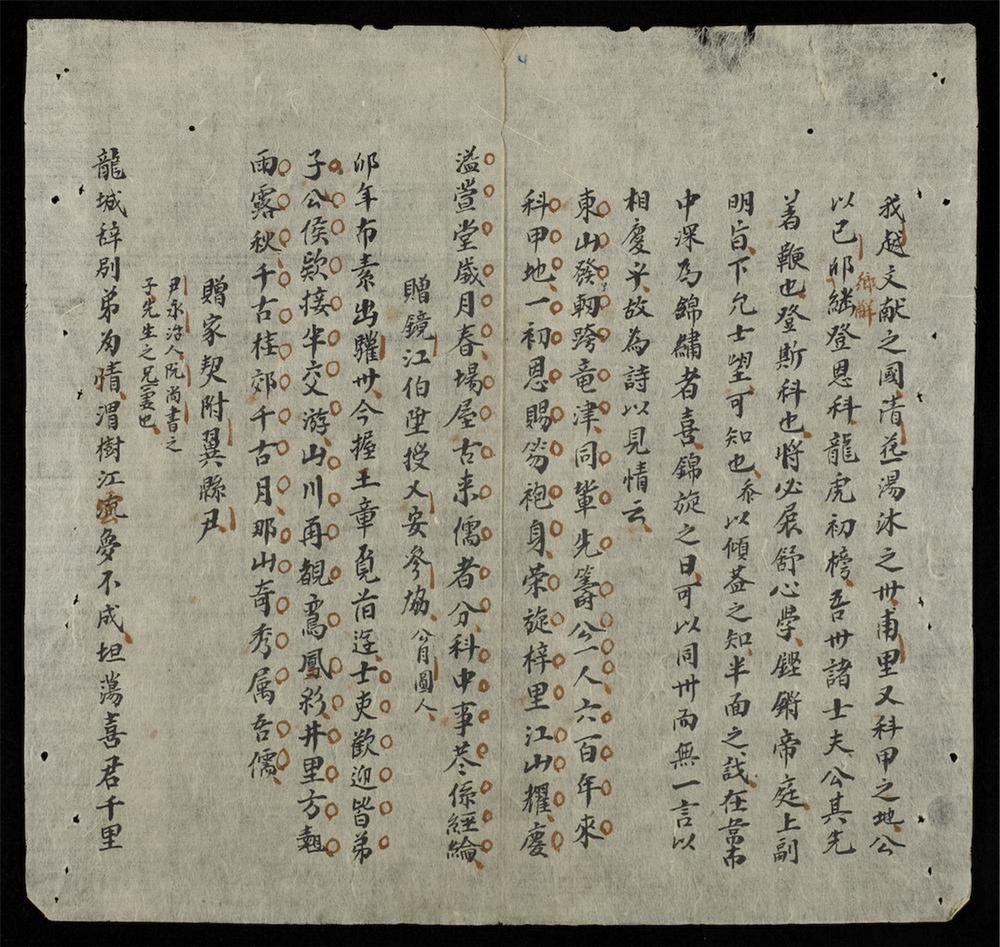 我越文献之國清花湯沐之卅甫里又科甲之地公
以己卯鄉解継登恩科龍虎初榜吾卅諸士夫公其先
着鞭也登斯科也將必展舒心學鏗鏘帝庭上副
明旨下允士望可知也忝以傾盖之知半面之哉在常市
中深為錦繡者喜錦旋之日可以同卅而無一言以
相慶乎故為詩以見情云
東山發軔跨竜津同輩先籌公一人六百年來
科甲地一初恩賜笏袍身榮旋梓里江山耀慶
溢萱堂歲月春場屋古来儒者分科中事葢係經綸
贈鏡江伯陞授乂安參協公目圖人
卯年布素出驩卅今握王章覔旧逰士吏歡迎皆弟
子公侯欵接半交游山川再覩鸞鳳彩井里方翹
雨露秋千古桂郊千古月那山奇秀属吾儒
贈家契附翼縣尹
尹永治人阮尚書之
子先生之兄妻也
龍城辞别弟為情渭樹江雲夢不成坦蕩喜君千里